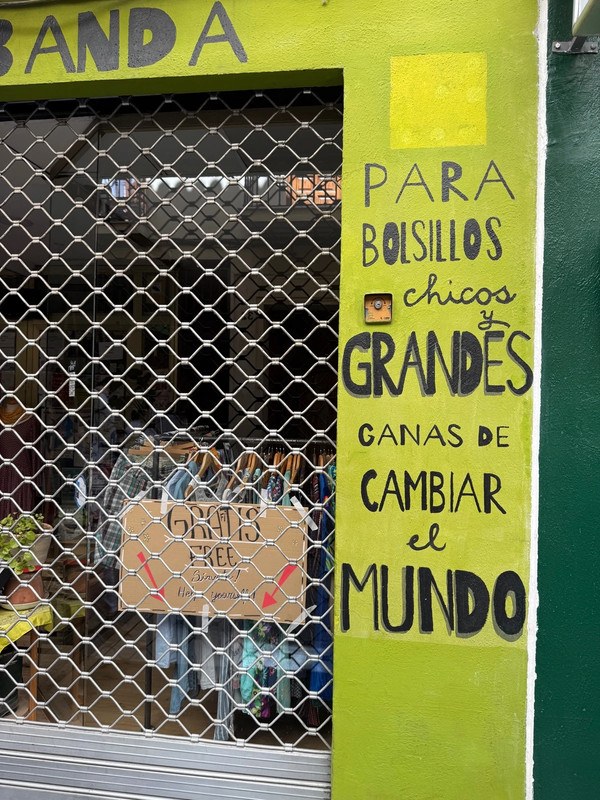 BANDA
PARA
BOLSILLOS
chicos
y
GRANDES
GANAS DE
CAMBIAR
el
MUNDO
GRATIS
FREE
Sírvete!
Help yourself!